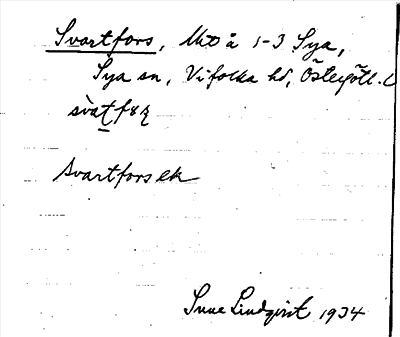 Svartfors, MtO å 1-3 Sya,
Sya sn, Vifolka hd, Östergötl. l
svat fɤʐ
Svartforsek
Sune Lindqvist 1934